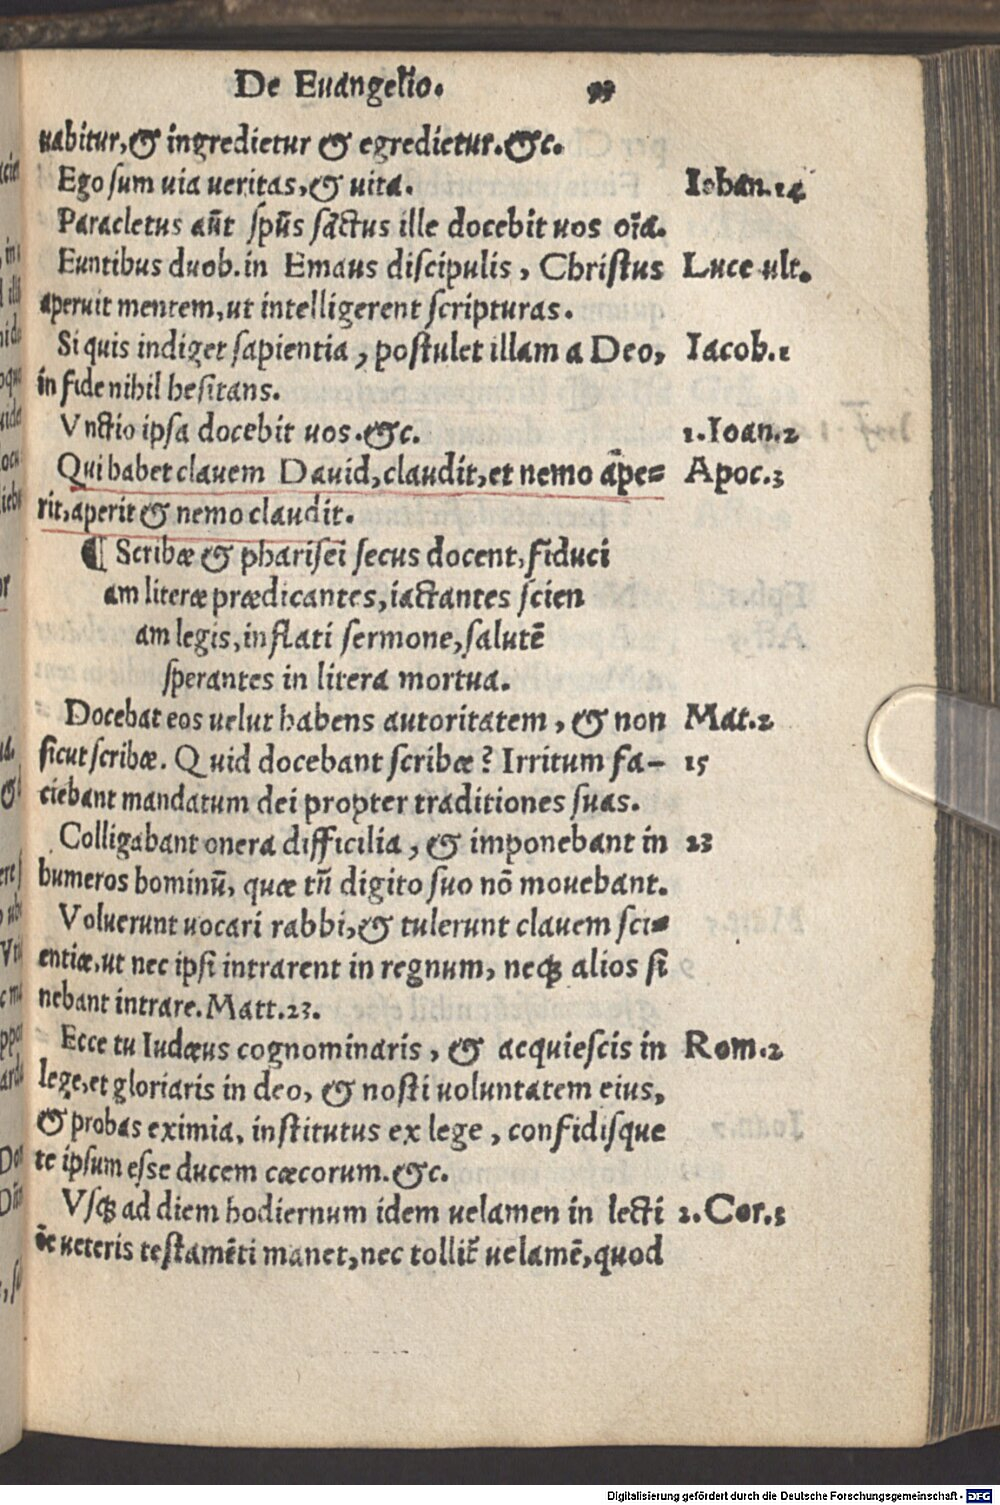 De Euangelio. 99
uabitur, & ingredietur & egredietur. &c.
Ego sum uia ueritas, & uita. Iohan.14
Paracletus aūt spūs sāctus ille docebit uos oīa.
Euntibus duob. in Emaus discipulis, Christus Luce ult.
aperuit mentem, ut intelligerent scripturas.
Si quis indiget sapientia, postulet illam a Deo, Iacob.1
in fide nihil hesitans.
Vnctio ipsa docebit uos. &c. 1.Ioan.2
Qui habet clauem Dauid, claudit, et nemo ape= Apoc.3
rit, aperit & nemo claudit.
¶ Scribæ & pharisei secus docent, fiduci
am literæ prædicantes, iactantes scien
am legis, inflati sermone, salutē
sperantes in litera mortua.
Docebat eos uelut habens autoritatem, & non Mat.2
sicut scribæ. Quid docebant scribæ? Irritum fa- 15
ciebant mandatum dei propter traditiones suas.
Colligabant onera difficilia, & imponebant in 23
humeros hominū, quæ tn̄ digito suo nō mouebant.
Voluerunt uocari rabbi, & tulerunt clauem sci=
entiæ, ut nec ipsi intrarent in regnum, neqꝫ alios si
nebant intrare. Matt.23.
Ecce tu Iudæus cognominaris, & acquiescis in Rom.2
lege, et gloriaris in deo, & nosti uoluntatem eius,
& probas eximia, institutus ex lege, confidisque
te ipsum esse ducem cæcorum. &c.
Vsqꝫ ad diem hodiernum idem uelamen in lecti 2.Cor.3
ōe ueteris testamēti manet, nec tollit̄ uelamē, quod
Digitalisierung gefördert durch die Deutsche Forschungsgemeinschaft - DFG